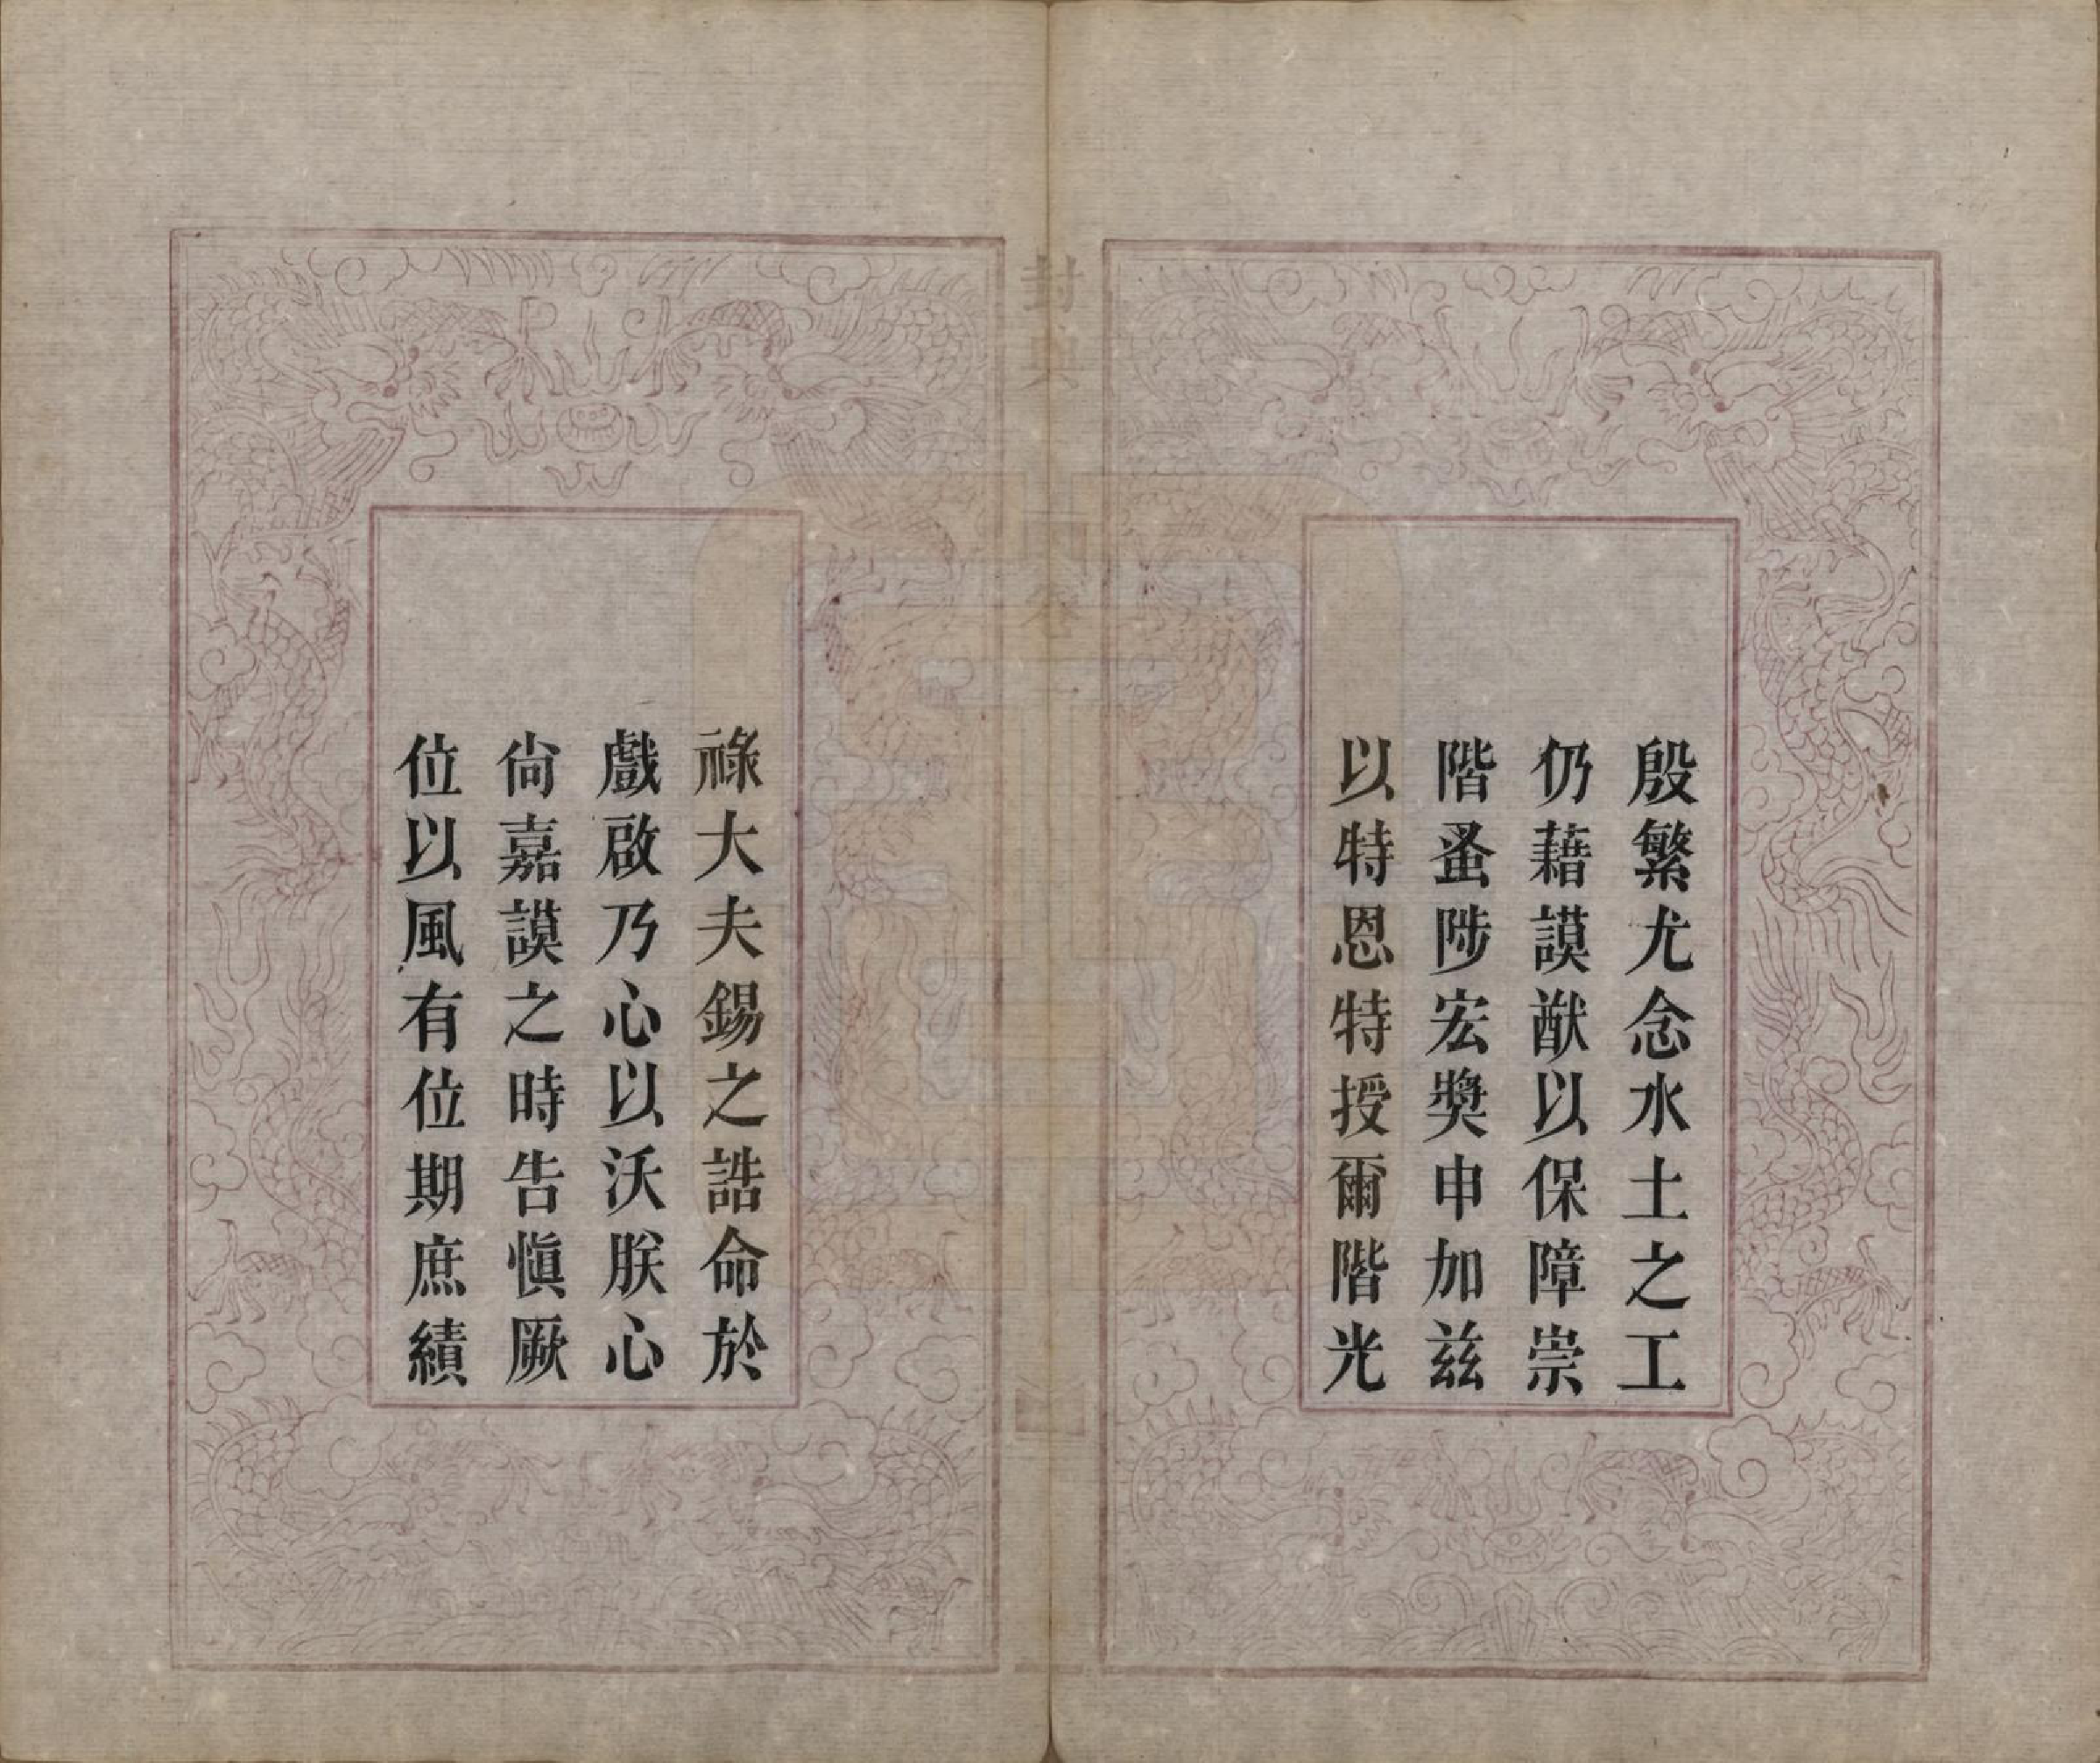 殷繁尤念水土之工
仍藉謨猷以保障崇
階蚤陟宏奬申加兹
以特恩特授爾階光
祿大夫錫之誥命於
戲啟乃心以沃朕心
尙嘉謨之時告愼厥
位以風有位期庶績